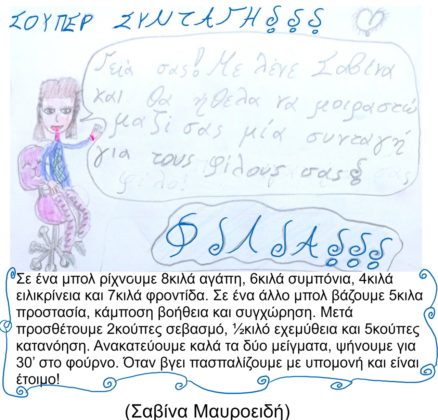 ΣΟΥΠΕΡ ΣΥΝΤΑΓΗ!!!
Γειά σας! Με λένε Σαβίνα
και θα ήθελα να μοιραστώ
μαζί σας μία συνταγή
για τους φίλους σας!
ΦΙΛΙΑ!!!
Σε ένα μπολ ρίχνουμε 8κιλά αγάπη, 6κιλά συμπόνια, 4κιλά
ειλικρίνεια και 7κιλά φροντίδα. Σε ένα άλλο μπολ βάζουμε 5κιλα
προστασία, κάμποση βοήθεια και συγχώρηση. Μετά
προσθέτουμε 2κούπες σεβασμό, ½κιλό εχεμύθεια και 5κούπες
κατανόηση. Ανακατεύουμε καλά τα δύο μείγματα, ψήνουμε για
30' στο φούρνο. Όταν βγει πασπαλίζουμε με υπομονή και είναι
έτοιμο!
(Σαβίνα Μαυροειδή)